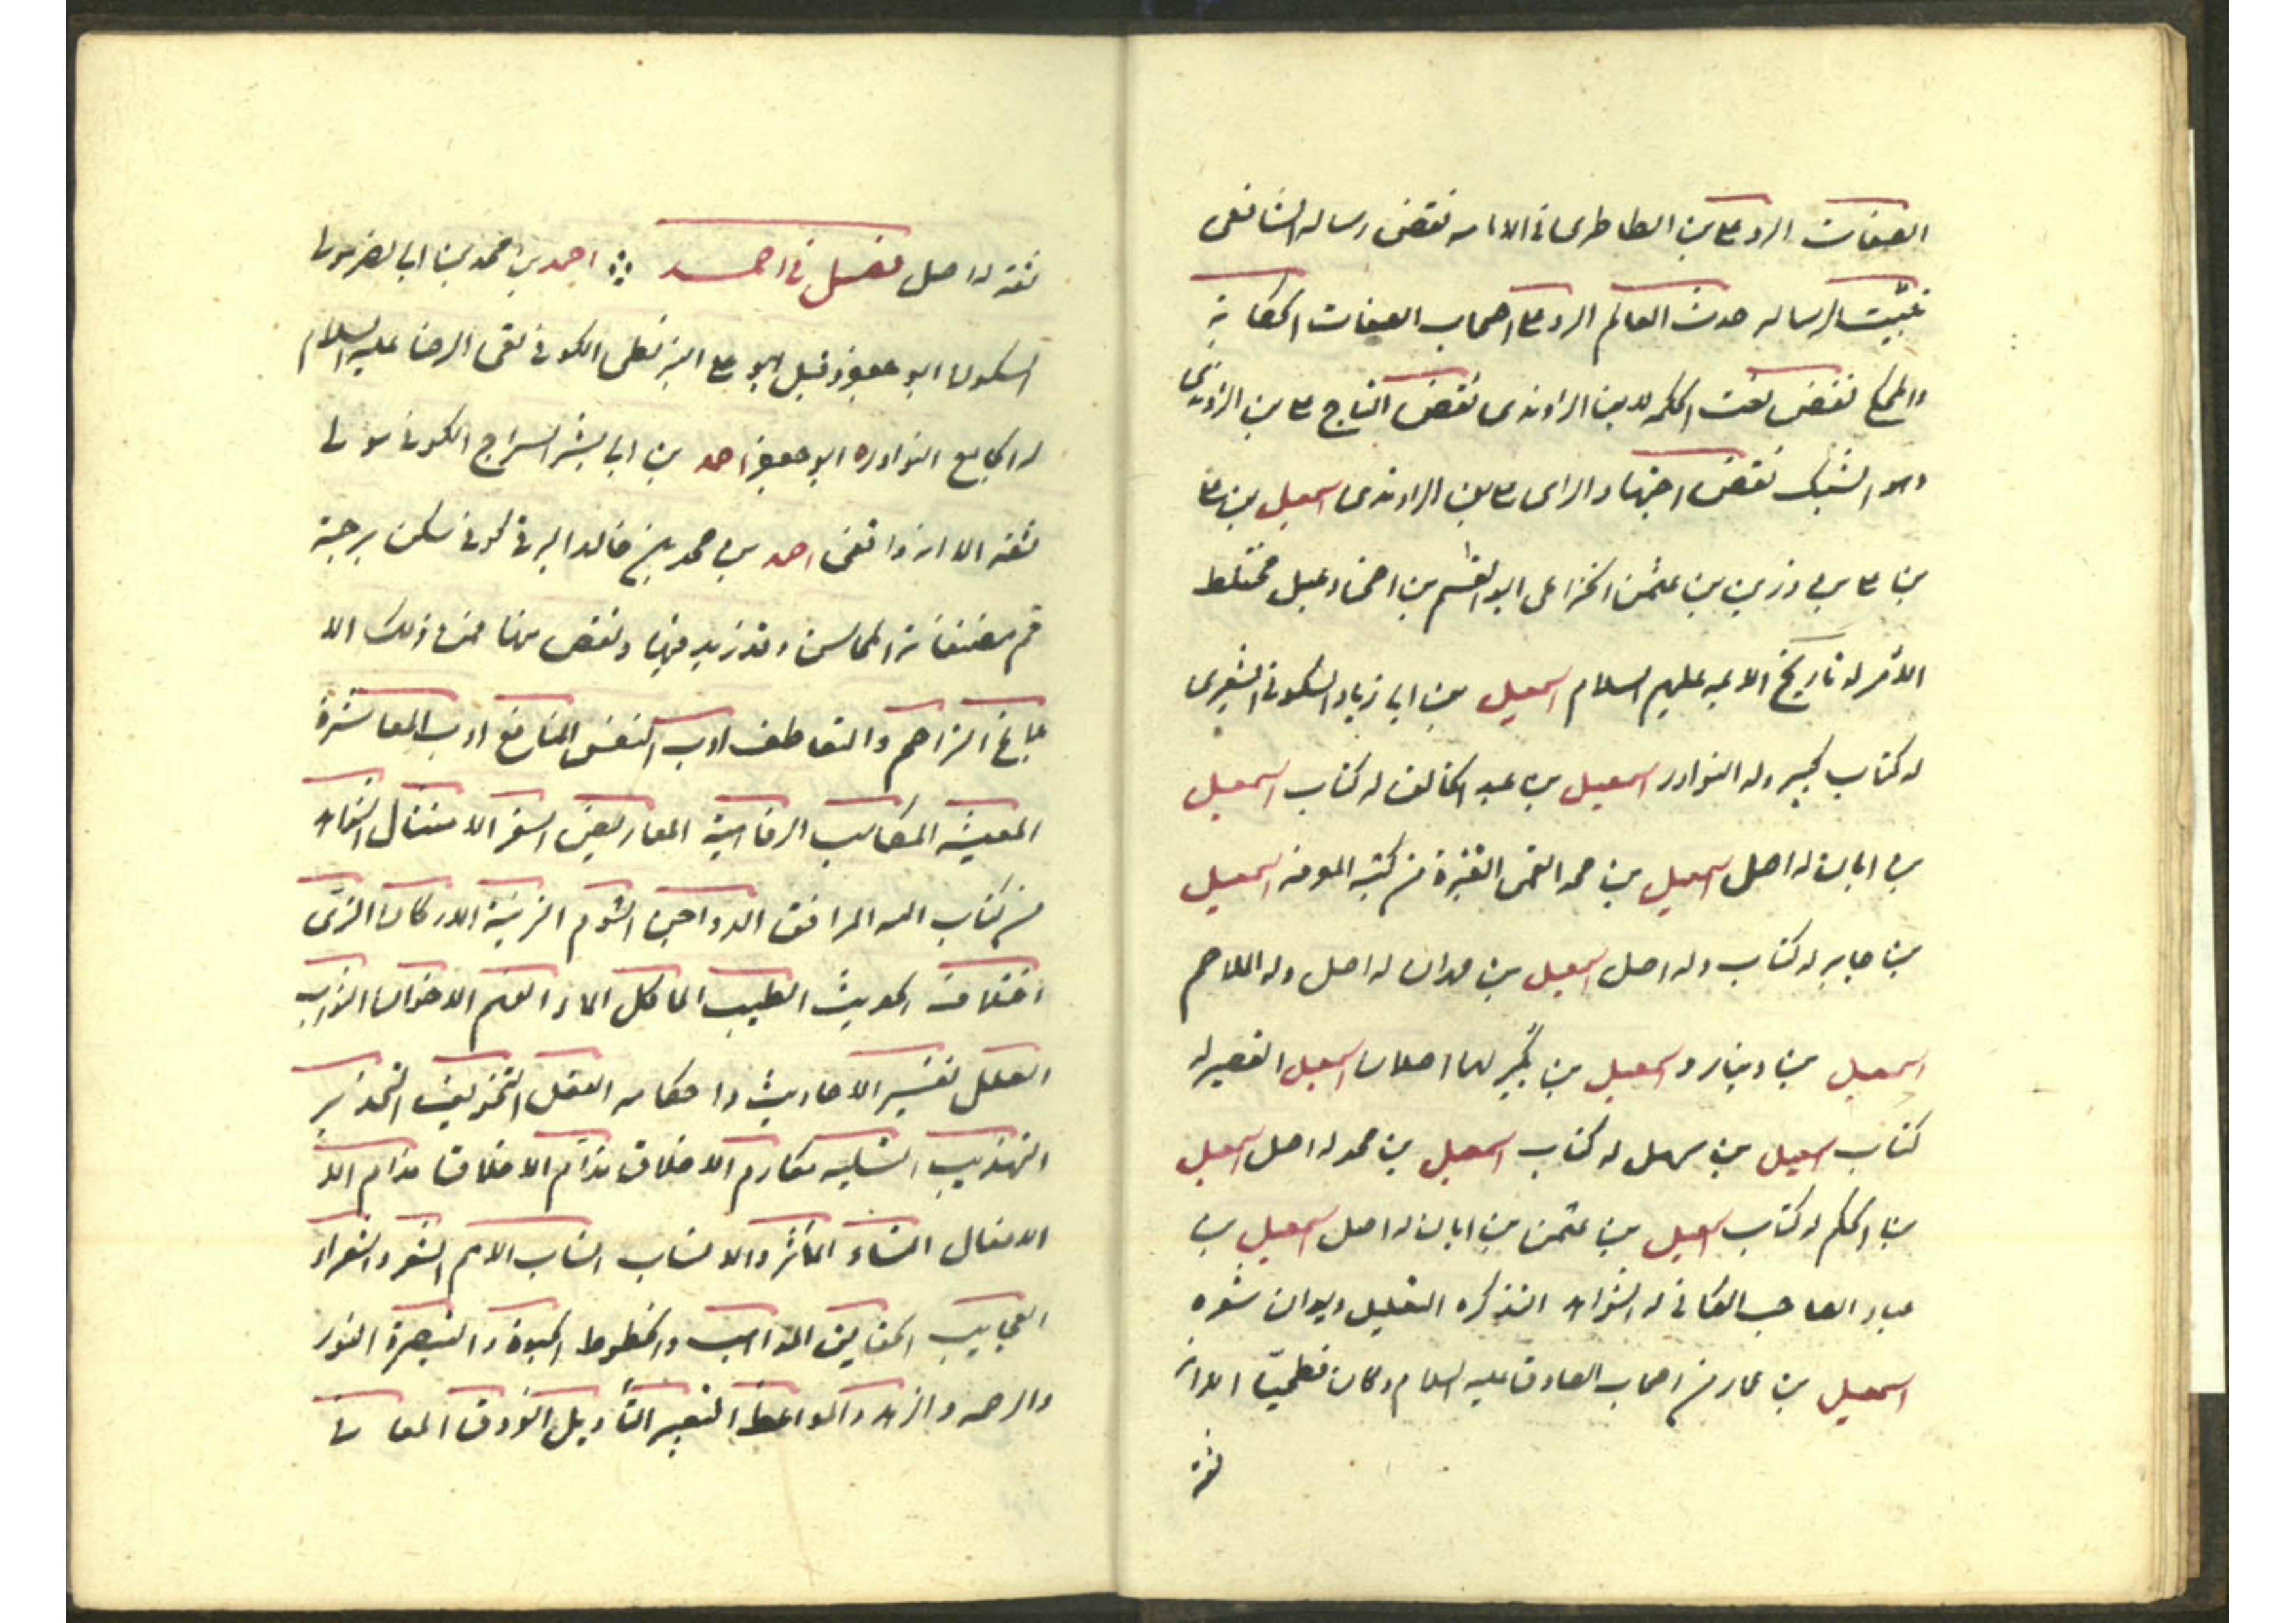 الصفات الرد على الطاطرى فى الامامه نقض رساله الشافعى
تثبيت الرساله حدث العالم الرد على اصحاب الصفات الحكاية
والمحكى نقض نعت الحكمه لابن الراوندى نقض التاج على بن الراوندى
وهو السبك نقض اجتهاد الراى على بن الراوندى اسمعيل بن على
بن على بن رزين بن عثمن الخزاعى ابو القسم بن اخى دعبل مختلط
الامر له تاريخ الائمه عليهم السلام اسمعيل بن ابى زياد السكونى الشعيرى
له كتاب كبير وله النوادر اسمعيل بن عبد الخالق له كتاب اسمعيل
بن ابان له اصل اسمعيل بن محمد القمى من كتبه المعرفه اسمعيل
بن جابر له كتاب وله اصل اسمعيل بن مهران له اصل وله الملاحم
اسمعيل بن دينار و اسمعيل بن بكير لهما اصلان اسمعيل القصير له
كتاب اسمعيل بن سهل له كتاب اسمعيل بن محمد له اصل اسمعيل
بن الحكم له كتاب اسمعيل بن عثمن بن ابان له اصل اسمعيل بن
عباد الصاحب الكافى له الشواهد التذكره التعليل ديوان شعره
اسمعيل بن عمار من اصحاب الصادق عليه السلام وكان فطحيّا الا انه
ثقة
ثقة له اصل فصل فى احمد احمد بن محمد بن ابى نصر مولى
السكونى ابو جعفر وقيل ابو على البزنطى الكوفى لقى الرضا عليه السلام
له الجامع النوادر ابو جعفر احمد بن ابى بشر السراج الكوفى مولى
ثقة الا انه واقفى احمد بن محمد بن خالد البرقى كوفى سكن برقة
قم مصنفاته المحاسن وقد زيد فيها ونقص منها فمن ذلك الا
بلاغ التراحم والتعاطف ادب النفس المنافع ادب المعاشرة
المعيشه المكاسب الرفاهية المعاريض السفر الامثال الشواهد
من كتاب الله المرافق الدواجن الشوم الزينة الاركان الزى
اختلاف الحديث الطيب الماكل الماء الفهم الاخوان الثواب
العلل تفسير الاحاديث واحكامه العقل التخويف التحذير
التهذيب التسليه مكارم الاخلاق مذام الاخلاق مذام الا
الافعال النساء الماثر والانساب انساب الامم الشعر والشعراء
العجايب الحقايق المواهب والحظوظ الحيوة والتبصرة النور
والرحمه والزهد والمواعظ التعبير التأويل الفروق المعانى